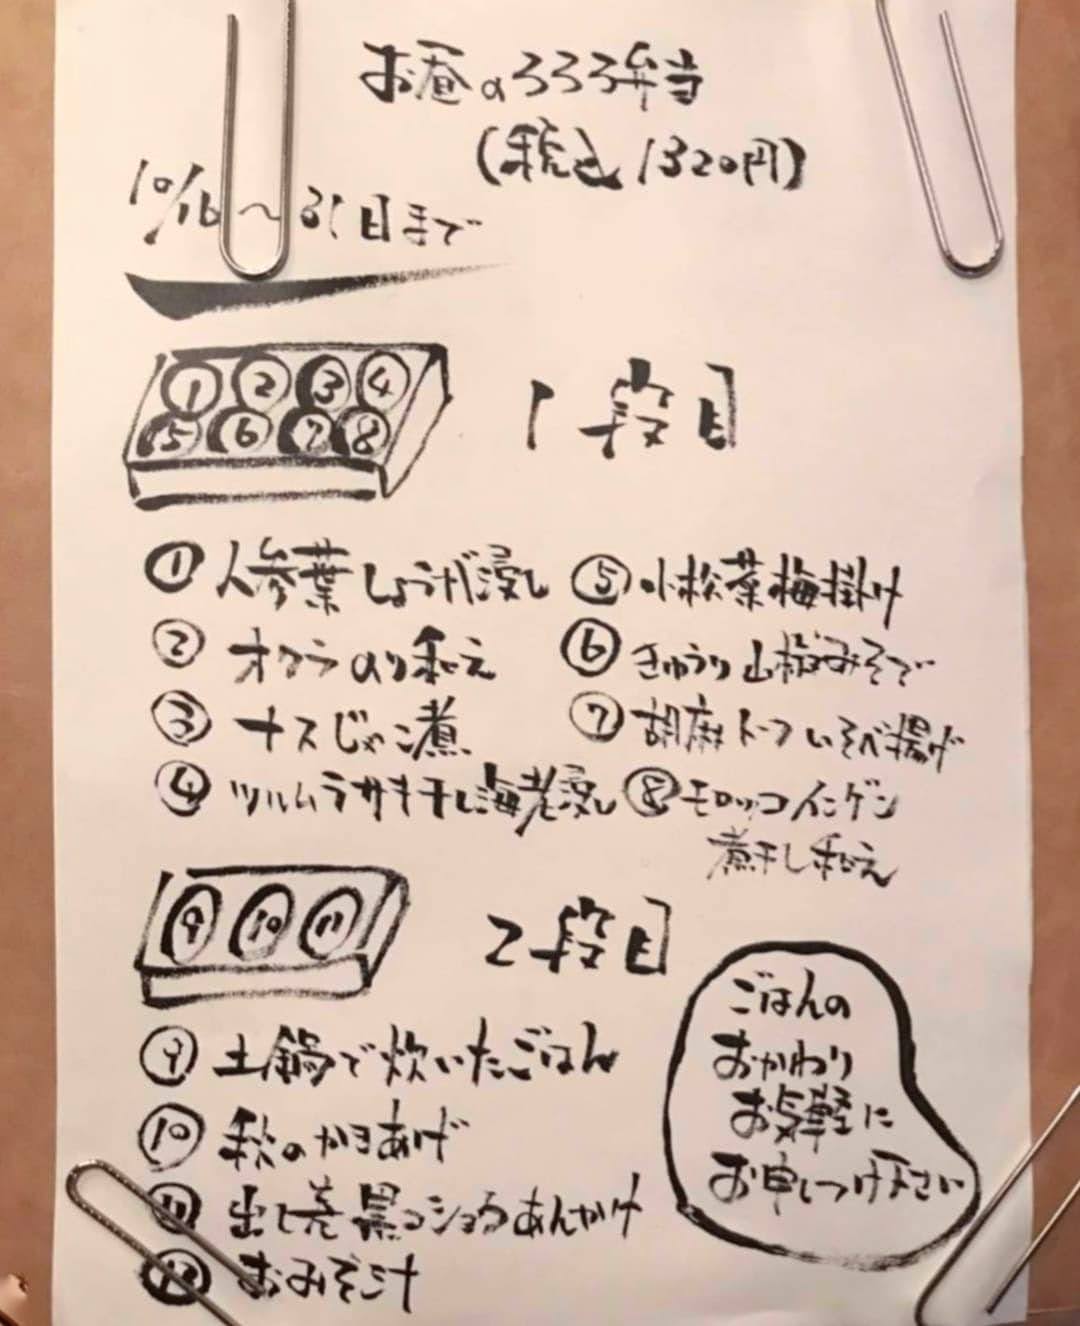 お昼のろろろ弁当
(税込1320円)
10/16〜31日まで
① ② ③ ④
⑤ ⑥ ⑦ ⑧
1段目
① 人参葉しょうが浸し
② オクラのり和え
③ ナスじゃこ煮
④ ツルムラサキ干し海老浸し
⑤ 小松菜梅掛け
⑥ きゅうり山椒みそで
⑦ 胡麻トーフいそべ揚げ
⑧ モロッコインゲン
煮干し和え
⑨ ⑩ ⑪
2段目
⑨ 土鍋で炊いたごはん
⑩ 秋のかきあげ
⑪ 出し巻黒コショウあんかけ
⑫ おみそ汁
ごはんの
おかわり
お気軽に
お申しつけ下さい